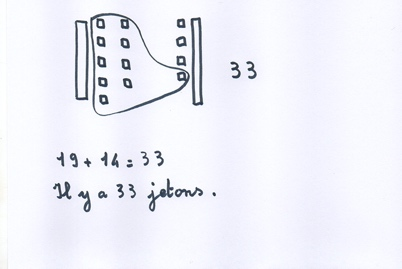 33
19 + 14 = 33
Il y a 33 jetons.